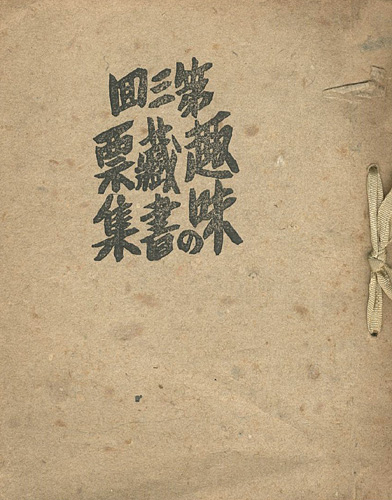 第三回
趣味の
藏書
票集